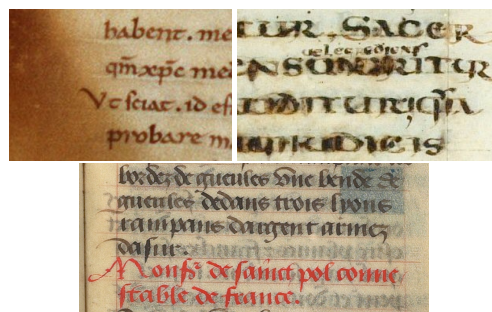 habent. me
qm̄ xp̄c me
Vt sciat. id es
probare m
TUR, SACER
uel lectionis
NSUMRITUR
DITURQ
IUDICIS
bordez de gueules vne bende de
gueules dedans trois lyons
rampans dargent armez
dasur.
Monsr̄ de saint pol conne
stable de france.